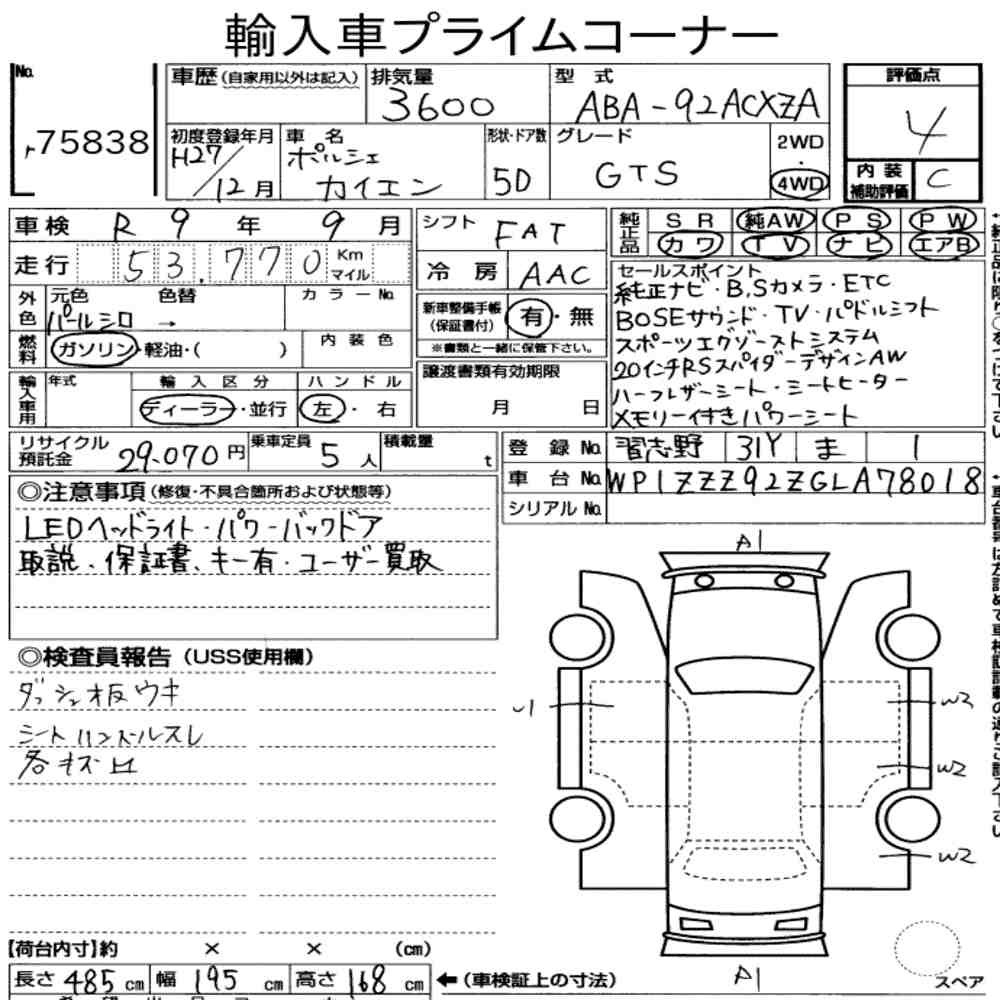 輸入車プライムコーナー
No. 75838
車歴(自家用以外は記入)
排気量 3600
型式 ABA-92ACXZA
評価点 4
初度登録年月 H27/12月
車名 ポルシェ カイエン
形状・ドア数 5D
グレード GTS
2WD・4WD
内装補助評価 C
車検 R9年9月
シフト FAT
純正品 SR 純AW PS PW
カワ TV ナビ エアB
走行 53,770 Km マイル
冷房 AAC
外色 元色 色替 カラーNo.
パールシロ →
新車整備手帳(保証書付) 有・無
※書類と一緒に保管下さい。
燃料 ガソリン・軽油・( )
内装色
セールスポイント
純正ナビ・B,Sカメラ・ETC
BOSEサウンド・TV・パドルシフト
スポーツエグゾーストシステム
20インチRSスパイダーデザインAW
ハーフレザーシート・シートヒーター
メモリー付きパワーシート
輸入車用 年式 輸入区分 ハンドル
ディーラー・並行 左・右
譲渡書類有効期限
月 日
リサイクル預託金 29,070円
乗車定員 5人
積載量 t
登録No. 習志野 31Y ま 1
車台No. WP1ZZZ92ZGLA78018
シリアルNo.
◎注意事項(修復・不具合箇所および状態等)
LEDヘッドライト・パワーバックドア
取説、保証書、キー有・ユーザー買取
◎検査員報告(USS使用欄)
ダッシュ板ウキ
シートハンドルスレ
各キズ凹
A1
U1
W2
W2
W2
A1
スペア
【荷台内寸】約 × × (cm)
長さ 485 cm 幅 195 cm 高さ 168 cm
←(車検証上の寸法)